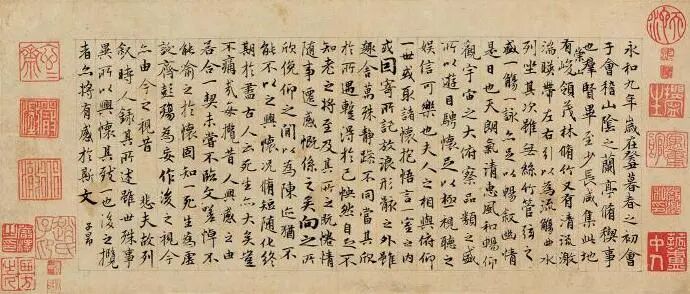 永和九年歲在癸丑暮春之初會
于會稽山陰之蘭亭脩稧事
也羣賢畢至少長咸集此地
有崇山峻領茂林脩竹又有清流激
湍暎帶左右引以為流觴曲水
列坐其次雖無絲竹管弦之
盛一觴一詠亦足以暢敘幽情
是日也天朗氣清惠風和暢仰
觀宇宙之大俯察品類之盛
所以遊目騁懷足以極視聽之
娛信可樂也夫人之相與俯仰
一世或取諸懷抱悟言一室之內
或因寄所託放浪形骸之外雖
趣舍萬殊靜躁不同當其欣
於所遇暫得於己怏然自足不
知老之將至及其所之既惓情
隨事遷感慨係之矣向之所
欣俛仰之間以為陳迹猶不
能不以之興懷況脩短隨化終
期於盡古人云死生亦大矣豈
不痛哉每攬昔人興感之由
若合一契未嘗不臨文嗟悼不
能喻之於懷固知一死生為虛
誕齊彭殤為妄作後之視今
亦由今之視昔 悲夫故列
敘時人錄其所述雖世殊事
異所以興懷其致一也後之攬
者亦將有感於斯文
子昂